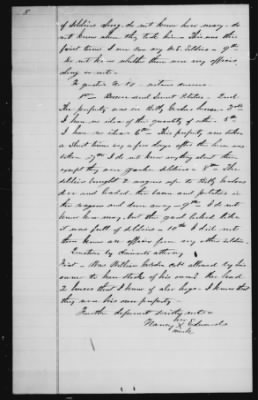 8
of soldiers along. do not know how many. do
not know whom they
first time I ever saw any U.S. Soldiers - 9th
do not know whether there was any officers
along or not -
To question No 40 - witness answers
1st - Bacon and Sweet Potatoes - 2nd
The property was in Betty house - 3rd
I have no idea of the quantity of either - 5th
I have no idea 6th - This property was taken
a short time say a few days after the horse was
taken - 7th I do not know anything about them
except they were yankee soldiers - 8th - The
soldiers brought 2 wagons up to Betty
door and loaded the bacon and potatoes in
the wagons and drove away - 9th - I do not
know how many. but the yard looked like
it was full of soldiers - 10th I did not
know officers from any other soldier.
Question by claimants attorney
First - Was William allowed by his
owner to have stock of his own? he had
2 horses that I know of also hogs - I know that
they were his own property -
Further deponent saith not -
her
Nancy X Edwards
mark